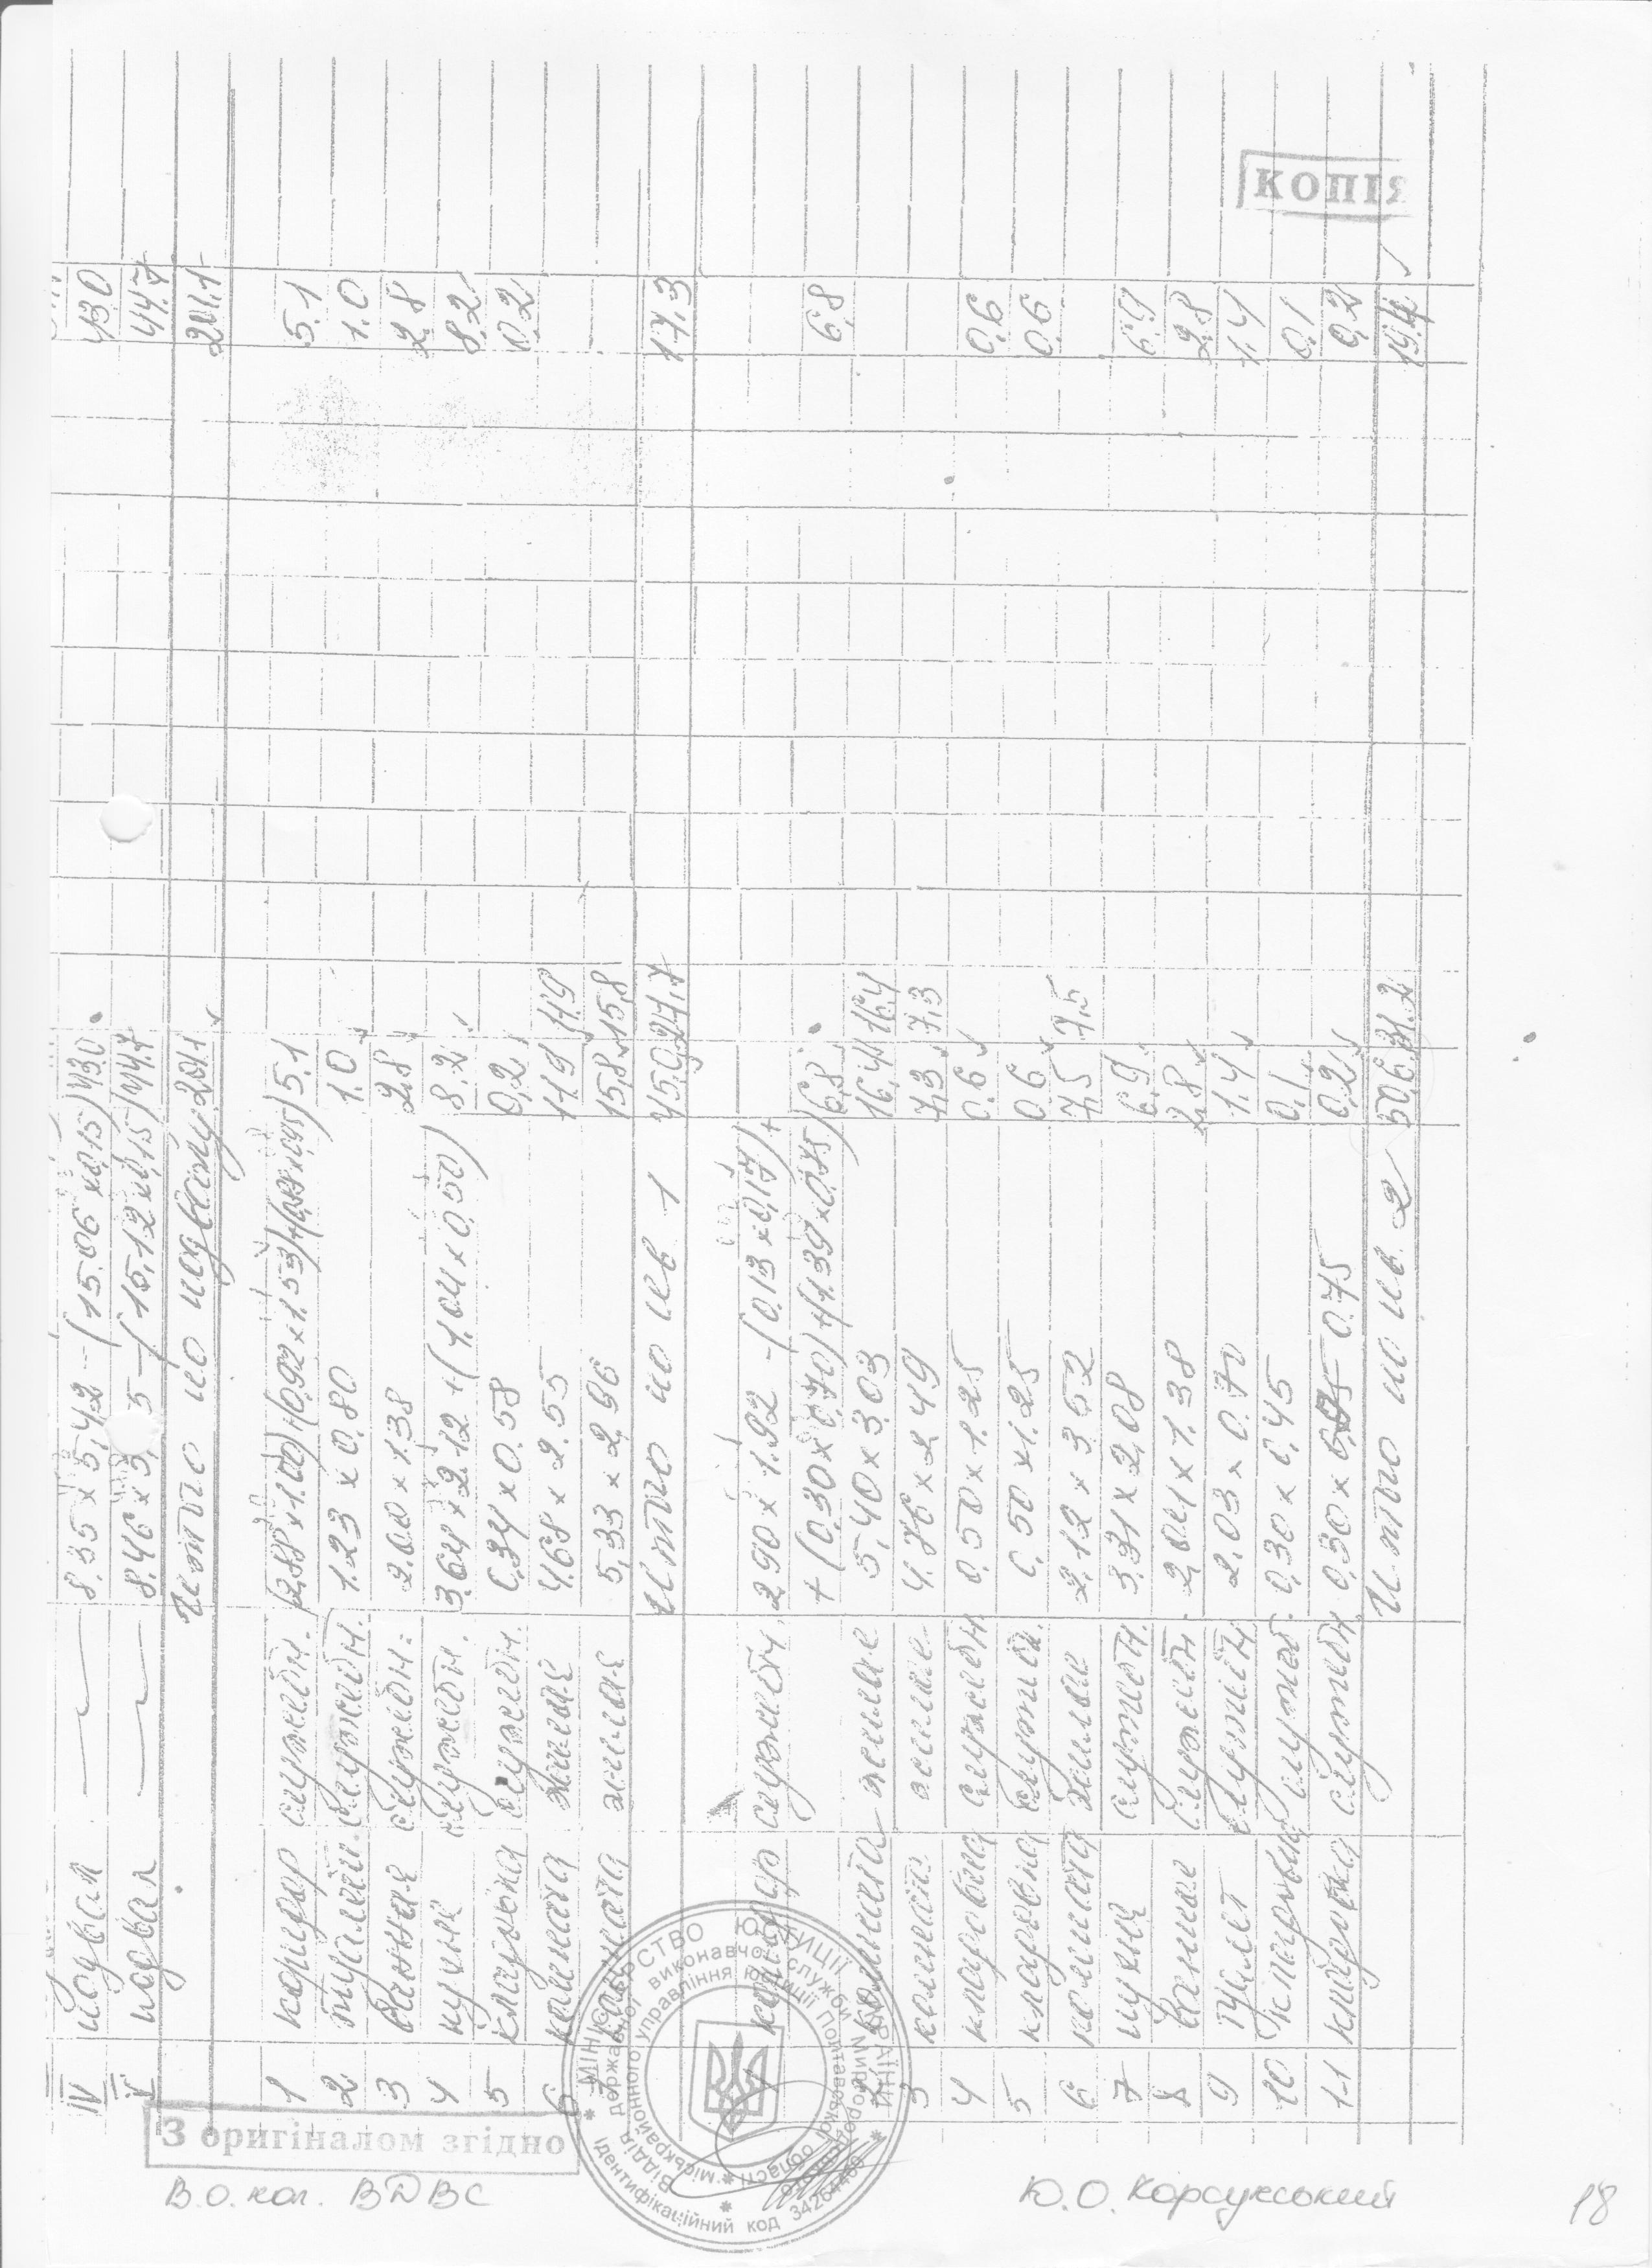 IV подвал 8.35 x 5,42 - (15.06 x 0,15) 43.0 43.0
V подвал 8.46 x 5, 5 - (15,12 x 0,15) 44.7 44.7
Итого по подвалу 204.1 204.1
1 коридор служебн. (2.88 x 1.00)+(0,92 x 1.53)+ 5.1 5.1
2 туалет служебн. 1.23 x 0.80 1.0 1.0
3 Ванная служебн. 2.00 x 1.38 2.8 2.8
4 кухня служебн. 3.64 x 2.12 + (1,04 x 0,50) 8.2 8.2
5 кладовка служебн. 0,34 x 0.58 0,2 0.2
6 комната жилая 4.68 x 2.55 11.9 11.9
комната жилая 5,33 x 2,96 15,8 15.8
Итого по кв 1 45.0 27.7 17.3
1 коридор служебн. 2,90 x 1.92 - (0,13 x 0,17) +
+ (0,30 x 0,70) + (1.39 x 0.75) 6,8 6,8
2 комната жилая 5,40 x 3,03 16,4 16.4
3 комната жилая 4.76 x 2,49 7,3 7,3
4 кладовка служебн. 0.50 x 1.25 0.6 0.6
5 кладовка служебн. 0.50 x 1.25 0.6 0.6
6 комната жилая 2,12 x 3,52 7,5 7,5
7 кухня служебн. 3,31 x 2,08 6,9 6,9
8 Ванная служебн. 2,01 x 1.38 2,8 2,8
9 туалет служебн. 2.03 x 0.70 1.4 1.4
10 кладовка служеб. 0,30 x 0,45 0,1 0,1
11 кладовка служебн. 0,30 x 0.75 0,2 0,2
Итого по кв. 2 50,6 31.2 19.4
КОПІЯ
З оригіналом згідно
МІНІСТЕРСТВО ЮСТИЦІЇ УКРАЇНИ
Відділ державної виконавчої служби Миргородського
міськрайонного управління юстиції Полтавської області
Ідентифікаційний код
В.О. нач. ВДВС Ю.О. Корсунський
18